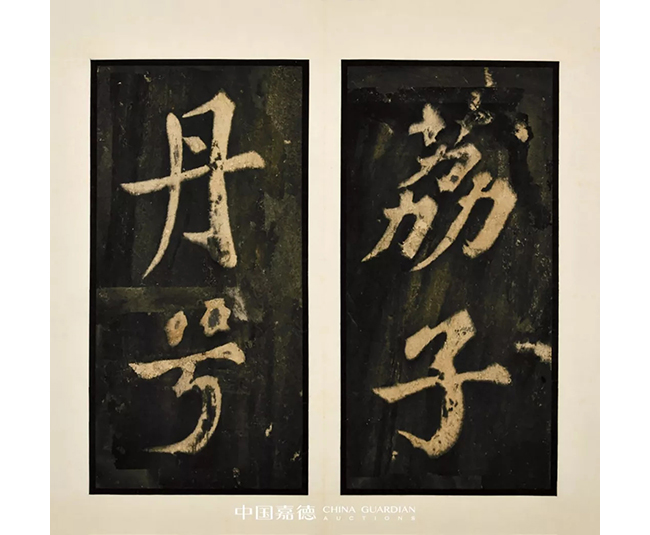 荔子
丹兮
中国嘉德 CHINA GUARDIAN
AUCTIONS